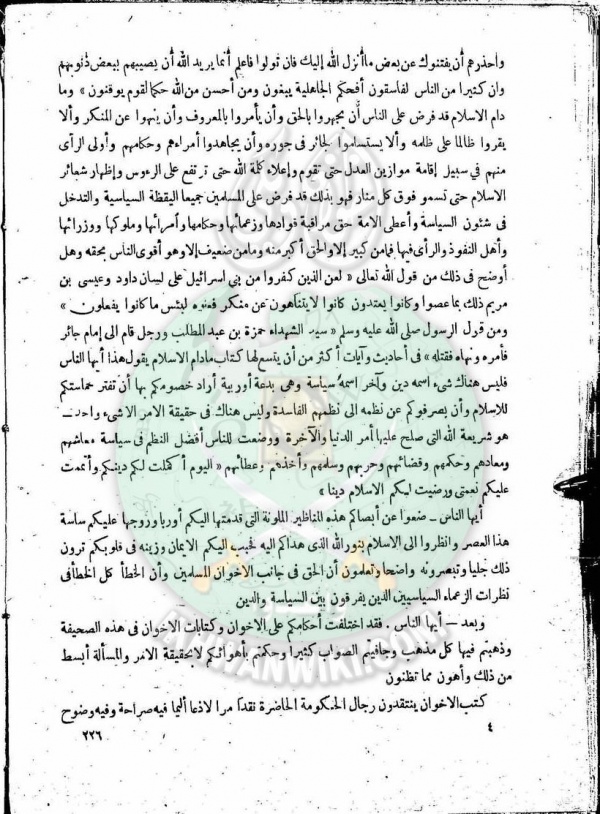 واحذرهم أن يفتنوك عن بعض ما أنزل الله إليك فان تولوا فاعلم أنما يريد الله أن يصيبهم ببعض ذنوبهم
وان كثيرا من الناس لفاسقون أفحكم الجاهلية يبغون ومن أحسن من الله حكما لقوم يوقنون » وما
دام الاسلام قد فرض على الناس أن يجهروا بالحق وأن يأمروا بالمعروف وأن ينهوا عن المنكر وألا
يقروا ظالما على ظلمه وألا يستسلموا لجائر فى جوره وأن يجاهدوا أمراءهم وحكامهم وأولى الرأى
منهم في سبيل إقامة موازين العدل حتى تقوم وإعلاء كلمة الله حتى ترتفع على الرءوس وإظهار شعائر
الاسلام حتى تسمو فوق كل منار فهو بذلك قد فرض على المسلمين جميعا اليقظة السياسية والتدخل
فى شئون السياسة وأعطى الامة حق مراقبة قوادها وزعمائها وحكامها وأمرائها وملوكها ووزرائها
وأهل النفوذ والرأى فيها فما من كبير إلا والحق أكبر منه وما من ضعيف إلا وهو أقوى الناس بحقه وهل
أوضح فى ذلك من قول الله تعالى « لعن الذين كفروا من بى اسرائيل على لسان داود وعيسى بن
مريم ذلك بما عصوا وكانوا يعتدون كانوا لا يتناهون عن منكر فعلوه لبئس ما كانوا يفعلون »
ومن قول الرسول صلى الله عليه وسلم « سيد الشهداء حمزة بن عبد المطلب ورجل قام الى إمام جائر
فأمره ونهاه فقتله » فى أحاديث وآيات أكثر من أن يتسع لها كتاب مادام الاسلام يقول هذا أيها الناس
فليس هناك شىء اسمه دين وآخر اسمه سياسة وهى بدعة أوربية أراد خصومكم بها أن تفتر حماستكم
للاسلام وأن يصرفوكم عن نظمه الى نظمهم الفاسدة وليس هناك فى حقيقة الامر الا شىء واحد ــ
هو شريعة الله التى صلح عليها أمر الدنيا والآخرة ووضعت للناس أفضل النظم فى سياسة معاشهم
ومعادهم وحكمهم وقضائهم وحربهم وسلمهم وأخذهم وعطائهم « اليوم أكملت لكم دينكم وأتممت
عليكم نعمتى ورضيت لكم الاسلام دينا »
أيها الناس ــ ضعوا عن أبصاكم هذه المناظير الملونة التى قدمتها اليكم أوربا وروجها عليكم ساسة
هذا العصر وانظروا الى الاسلام بنور الله الذى هداكم اليه فحبب اليكم الايمان وزينه فى قلوبكم ترون
ذلك جليا وتبصرونه واضحا وتعلمون أن الحق فى جانب الاخوان المسلمين وأن الخطأ كل الخطأ فى
نظرات الزعماء السياسيين الذين يفرقون بين السياسة والدين
وبعد ــ أيها الناس . فقد اختلفت أحكامكم على الاخوان وكتابات الاخوان فى هذه الصحيفة
وذهبتم فيها كل مذهب وجافيتم الصواب كثيرا وحكمتم بأهوائكم لا بحقيقة الامر والمسألة أبسط
من ذلك وأهون مما تظنون
كتب الاخوان ينتقدون رجال الحكومة الحاضرة نقدا مرا لاذعا أليما فيه صراحة وفيه وضوح
٤
٢٢٦
IKHWANWIKI.COM